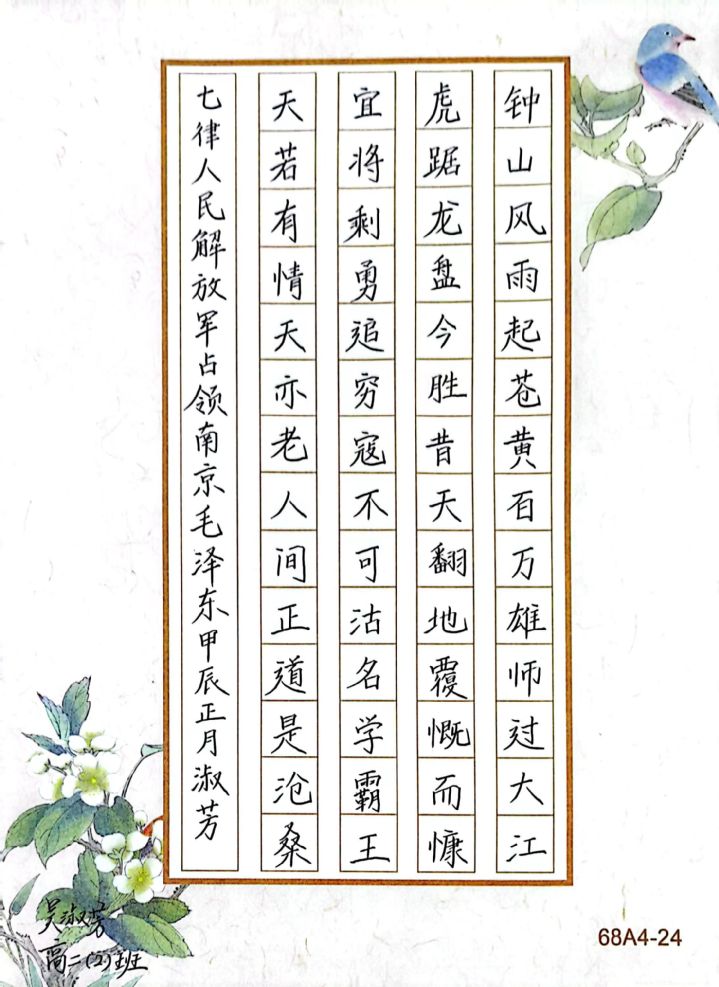 钟山风雨起苍黄百万雄师过大江
虎踞龙盘今胜昔天翻地覆慨而慷
宜将剩勇追穷寇不可沽名学霸王
天若有情天亦老人间正道是沧桑
七律人民解放军占领南京毛泽东甲辰正月淑芳
吴淑芳
高二(2)班
68A4-24